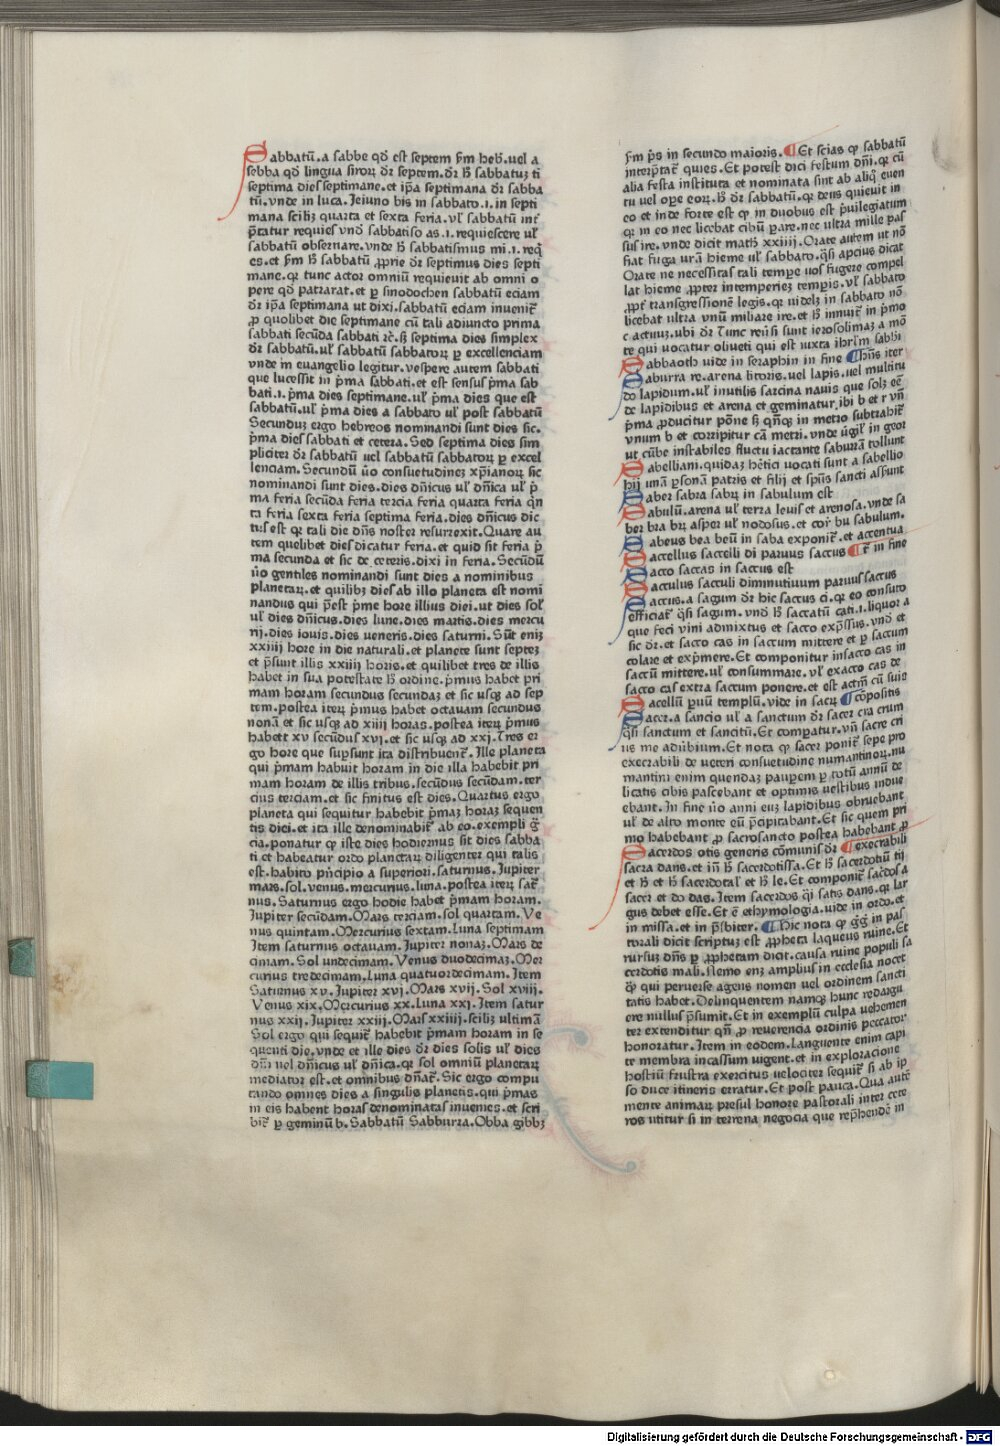 Sabbatū.a sabbe qđ est septem s̄m heb̄.uel a
sebba qđ lingua siroꝝ dr̄ septem.dr̄ h̄ sabbatuꝫ ti
septima dies septimane.et ip̄a septimana dr̄ sabba
tū.vnde in luca.Ieiuno bis in sabbato.i.in septi
mana sciliꝫ quarta et sexta feria.vl̄ sabbatū int̄
p̄tatur requies vnđ sabbatiso as.i.requiescere ul̄
sabbatū obseruare.vnde h̄ sabbatismus mi.i.req̄
es.et s̄m h̄ sabbatū ꝓprie dr̄ septimus dies septi
mane.qꝛ tunc actor omniū requieuit ab omni o
pere qđ patrarat.et ꝑ sinodochen sabbatū eciam
dr̄ ip̄a septimana ut dixi.sabbatū eciam inuenit̄
ꝓ quolibet die septimane cū tali adiuncto prima
sabbati secūda sabbati ⁊c̄.s̄ septima dies simplex
dr̄ sabbatū.ul̄ sabbatū sabbatoꝝ ꝑ excellenciam
vnde in euangelio legitur.vespere autem sabbati
que lucessit in p̄ma sabbati.et est sensus p̄ma sab
bati.i.p̄ma dies septimane.ul̄ p̄ma dies que est
sabbatū.ul̄ p̄ma dies a sabbato ul̄ post sabbatū
Secunduꝫ ergo hebreos nominandi sunt dies sic.
p̄ma dies sabbati et cetera.Sed septima dies sim
pliciter dr̄ sabbatū uel sabbatū sabbatoꝝ ꝑ excel
lenciam.Secundū ūo consuetudineꝫ xp̄ianoꝝ sic
nominandi sunt dies.dies dn̄icus ul̄ dn̄ica ul̄ p̄
ma feria secūda feria tercia feria quarta feria q̄n
ta feria sexta feria septima feria.dies dn̄icus dic
tus est qꝛ tali die dn̄s noster resurrexit.Quare au
tem quelibet dies dicatur feria.et quid sit feria p̄
ma secunda et sic de ceteris.dixi in feria.Secūdū
ūo gentiles nominandi sunt dies a nominibus
planetaꝝ.et quilibꝫ dies ab illo planeta est nomi
nandus qui p̄est p̄me hore illius diei.ut dies sol̄
ul̄ dies dn̄icus.dies lune.dies martis.dies mercu
rij.dies iouis.dies ueneris.dies saturni.Sūt eniꝫ
xxiiij hore in die naturali.et planete sunt septeꝫ
et p̄sunt illis xxiiij horis.et quilibet tres de illis
habet in sua potestate h̄ ordine.p̄mus habet pri
mam horam secundus secundaꝫ et sic usqꝫ ad sep
tem.postea iteꝝ p̄mus habet octauam secundus
nonā et sic usqꝫ ad xiiij horas.postea iteꝝ p̄mus
habett xv secūdus xvj.et sic usqꝫ ad xxj.Tres er
go hore que suꝑsunt ita distribuent̄.Ille planeta
qui p̄mam habuit horam in die illa habebit pri
mam horam de illis tribus.secūdus secūdam.ter
cius terciam.et sic finitus est dies.Quartus ergo
planeta qui sequitur habebit p̄maꝫ horaꝫ sequen
tis diei.et ita ille denominabit̄ ab eo.exempli ḡ
cia.ponatur ꝙ iste dies hodiernus sit dies sabba
ti et habeatur ordo planetaꝝ diligenter qui talis
est.habito p̄ncipio a superiori.saturnus.Jupiter
mars.sol.venus.mercurius.luna.postea iteꝝ sat̄
nus.Saturnus ergo hodie habet p̄mam horam.
Jupiter secūdam.Mars terciam.sol quartam.Ve
nus quintam.Mercurius sextam.Luna septimam
Item saturnus octauam.Jupiter nonaꝫ.Mars de
cimam.Sol undecimam.Venus duodecimaꝫ.Mer
curius tredecimam.Luna quatuordecimam.Item
Saturnus xv.Jupiter xvj.Mars xvij.Sol xviij.
Venus xix.Mercurius xx.Luna xxj.Item satur
nus xxij.Jupiter xxiij.Mars xxiiij.sciliꝫ ultimā
Sol ergo qui sequit̄ habebit p̄mam horam in se
quenti die.vnde et ille dies dr̄ dies solis ul̄ dies
dn̄i uel dn̄icus ul̄ dn̄ica.qꝛ sol omniū planetaꝝ
mediator est.et omnibus dn̄at̄.Sic ergo compu
tando omnes dies a singulis planetis.qui p̄mas
in eis habent horas denominatas inuenies.et scri
bit̄ ꝑ geminū b.Sabbatū Sabburra.Obba gibbꝫ
s̄m p̄s in secundo maioris.¶Et scias ꝙ sabbatū
interp̄tat̄ quies.Et potest dici festum dn̄i.qꝛ cū
alia festa instituta et nominata sint ab aliq̄ euen
tu uel oꝑe eoꝝ.h̄ dr̄ sabbatū.qꝛ deus quieuit in
eo et inde forte est ꝙ in duobus est p̄uilegiatum
qꝛ in eo nec licebat cibū ꝑare.nec ultra mille pas
sus ire.vnde dicit math̄ xxiiij.Orate autem ut nō
fiat fuga ur̄a hieme ul̄ sabbato.q̄si apcius dicat
Orate ne necessitas tali temꝑe uos fugere compel
lat hieme ꝓpter intemperieꝫ temꝑis.vl̄ sabbato
ꝓpt̄ transgressionē legis.qꝛ uidelꝫ in sabbato nō
licebat ultra vnū miliare ire.et h̄ innuit̄ in p̄mo
c actuuꝫ.ubi dr̄ Tunc reūsi sunt ierosolimaꝫ a mō
te qui uocatur oliueti qui est iuxta ihrl̄m sabbi
Sabbaoth uide in seraphin in fine ¶h̄ns iter
Saburra re.arena litoris.uel lapis.uel multitu
do lapidum.ul̄ inutilis sarcina nauis que solꝫ eē
de lapidibus et arena et geminatur ibi b et r vn̄
p̄ma ꝓducitur pōne s̄ qn̄qꝫ in metro subtrahit̄
vnum b et corripitur cā metri.vnde ūgil̄ in geor
ut cūbe instabiles fluctu iactante saburrā tollunt
Sabelliani.quidaꝫ hētici uocati sunt a sabellio
hij unā ꝑsonā patris et filij et sp̄us sancti assunt
Saber sabra sabꝝ in sabulum est
Sabulū.arena ul̄ terra leuis et arenosa.vnde sa
ber bra bꝝ asper ul̄ nodosus.et cor̄ bu sabulum.
Sabeus bea beū in saba exponit̄.et accentua
Saccellus saccelli di paruus saccus ¶t̄ in fine
Sacco saccas in saccus est
Sacculus sacculi diminutiuum paruus saccus
Saccus.a sagum dr̄ hic saccus ci.qꝛ eo consuto
efficiat̄ q̄si sagum.vnđ h̄ saccatū cati.i.liquor a
que feci vini admixtus et sacco exp̄ssus.vnđ et
sic dr̄.et sacco cas in saccum mittere et ꝑ saccum
colare et exp̄mere.Et componitur insacco cas in
saccū mittere.ul̄ consummare.vl̄ exacco cas de
sacco cas extra saccum ponere.et est actm̄ cū suis
Sacellū ꝑuū templū.vide in sacꝝ ¶cōpositis
Sacer.a sancio ul̄ a sanctum dr̄ sacer cra crum
q̄si sanctum et sancitū.Et comꝑatur.vn̄ sacre cri
us me aduībium.Et nota ꝙ sacer ponit̄ sepe pro
execrabili de ueteri consuetudine numantinoꝝ.nu
mantini enim quendaꝫ pauꝑem ꝑ totū annū de
licatis cibis pascebant et optimis uestibus indue
ebant.In fine ūo anni euꝫ lapidibus obruebant
ul̄ de alto monte eū p̄cipitabant.Et sic quem pri
mo habebant ꝓ sacrosancto postea habebant ꝓ
Sacerdos otis generis cōmunis dr̄ ¶execrabili
sacra dans.et in̄ h̄ sacerdotissa.Et h̄ sacerdotiū tij
et h̄ et h̄ sacerdotal̄ et h̄ le.Et componit̄ sac̄dos a
sacer et do das.Item sacerdos q̄i satis dans.qꝛ lar
gus debet esse.Et ē ethymologia.uide in ordo.et
in missa.et in p̄sbiter.¶Hic nota ꝙ ḡḡ in pas
torali dicit scriptuꝫ est ꝓpheta laqueus ruine.Et
rursuꝫ dn̄s ꝑ ꝓphetam dicit.causa ruine populi sa
cerdotis mali.Nemo enꝫ amplius in ecclesia nocet
q̄ꝫ qui peruerse agens nomen uel ordinem sancti
tatis habet.Delinquentem namqꝫ hunc redargu
ere nullus p̄sumit.Et in exemplū culpa uehemen
ter extenditur qn̄ ꝓ reuerencia ordinis peccator
honoratur.Item in eodem.Languente enim capi
te membra incassum uigent.et in exploracione
hostiū frustra exercitus uelociter sequit̄ si ab ip
so duce itineris erratur.Et post pauca.Qua autē
mente animaꝝ presul honore pastorali inter cete
ros utitur si in terrena negocia que rep̄hendē in
Digitalisierung gefördert durch die Deutsche Forschungsgemeinschaft - DFG